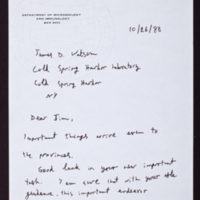 DEPARTMENT OF MICROBIOLOGY
AND IMMUNOLOGY
10/26/88
James D. Watson
Cold Spring Harbor Laboratory
Cold Spring Harbor
NY
Dear Jim,
Important things arrive even to
the provinces.
Good luck in your new important
task. I am sure that with your able
guidance, this important endeavor